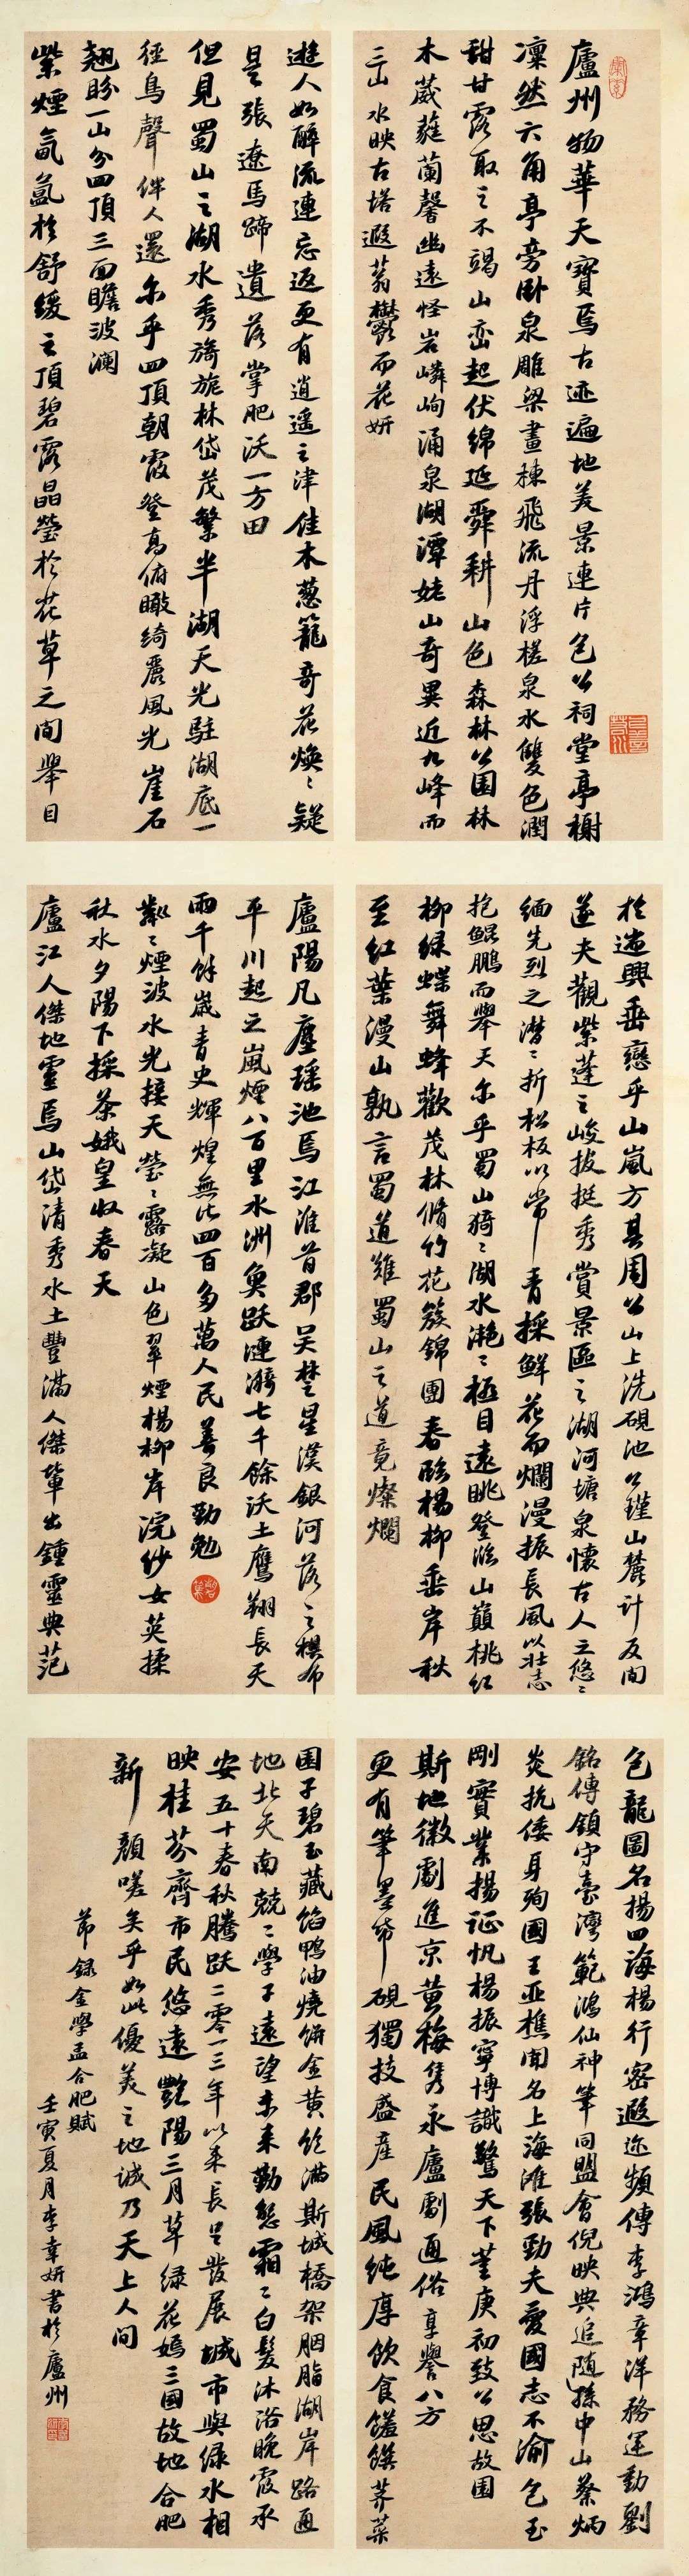 廬州物華天寶焉古迹遍地美景連片包公祠堂亭榭
凜然六角亭旁卧泉雕梁畫棟飛流丹浮槎泉水雙色潤
甜甘露取之不竭山巒起伏綿延舜耕山色森林公園林
木葳蕤蘭馨幽遠怪岩嶙峋涌泉湖潭姥山奇異近九峰而
三山水映古塔遐蓊鬱而花妍
遊人如醉流連忘返更有逍遙之津佳木蔥籠奇花煥〻疑
是張遼馬蹄遺落掌肥沃一方田
但見蜀山之湖水秀旖旎林岱茂繁半湖天光駐湖底一
徑鳥聲伴人還尔乎四頂朝霞登高俯瞰綺麗風光崖石
翹盼一山分四頂三面瞻波瀾
紫煙氤氳於舒緩之頂碧露晶瑩於花草之間舉目
於遊興垂戀乎山嵐方具周公山上洗硯池公瑾山麓計反間
遂夫觀紫蓬之峻拔挺秀賞景區之湖河塘泉懷古人之悠〻
緬先烈之潸〻折松板以常青採鮮花而爛漫振長風以壯志
抱鯤鵬而舉天尔乎蜀山猗〻湖水灔〻極目遠眺登臨山巔桃紅
柳绿蝶舞蜂歡茂林脩竹花簇錦團春臨楊柳垂岸秋
至紅葉漫山孰言蜀道難蜀山之道竟燦爛
廬陽凡塵瑤池焉江淮首郡吴楚星漢銀河落之棋布
平川起之嵐煙八百里水洲魚跃漣漪七千餘沃土鷹翔長天
兩千餘歲青史輝煌無比四百多萬人民善良勤勉
粼〻煙波水光接天瑩〻露凝山色翠煙楊柳岸浣紗女英揉
秋水夕陽下採茶娥皇收春天
廬江人傑地靈焉山岱清秀水土豐滿人傑輩出鍾靈典范
包龍圖名揚四海楊行密遐迩頻傳李鴻章洋務運動劉
銘傳鎮守臺灣範鴻仙神筆同盟會倪映典追随孫中山蔡炳
炎抗倭身殉國王亚樵聞名上海滩張勁夫愛國志不渝包玉
剛實業揚证帆楊振寧博識驚天下董庚初致公思故園
斯地徽劇進京黄梅隽永廬劇通俗享譽八方
更有筆墨紙硯獨技盛産民風纯厚飲食饈饌荠菜
圆子碧玉藏馅鸭油燒餅金黄饱满斯城橋架胭脂湖岸路通
地北天南兢〻學子遠望未来勤懇霜〻白髮沐浴晚霞承
安五十春秋騰跃二零一三年以来長足發展城市與绿水相
映桂芬齊市民悠遠艷陽三月草绿花嫣三國故地合肥
新顔嗟矣乎如此優美之地誠乃天上人間
节録金學孟合肥賦
壬寅夏月李幸妍書於廬州